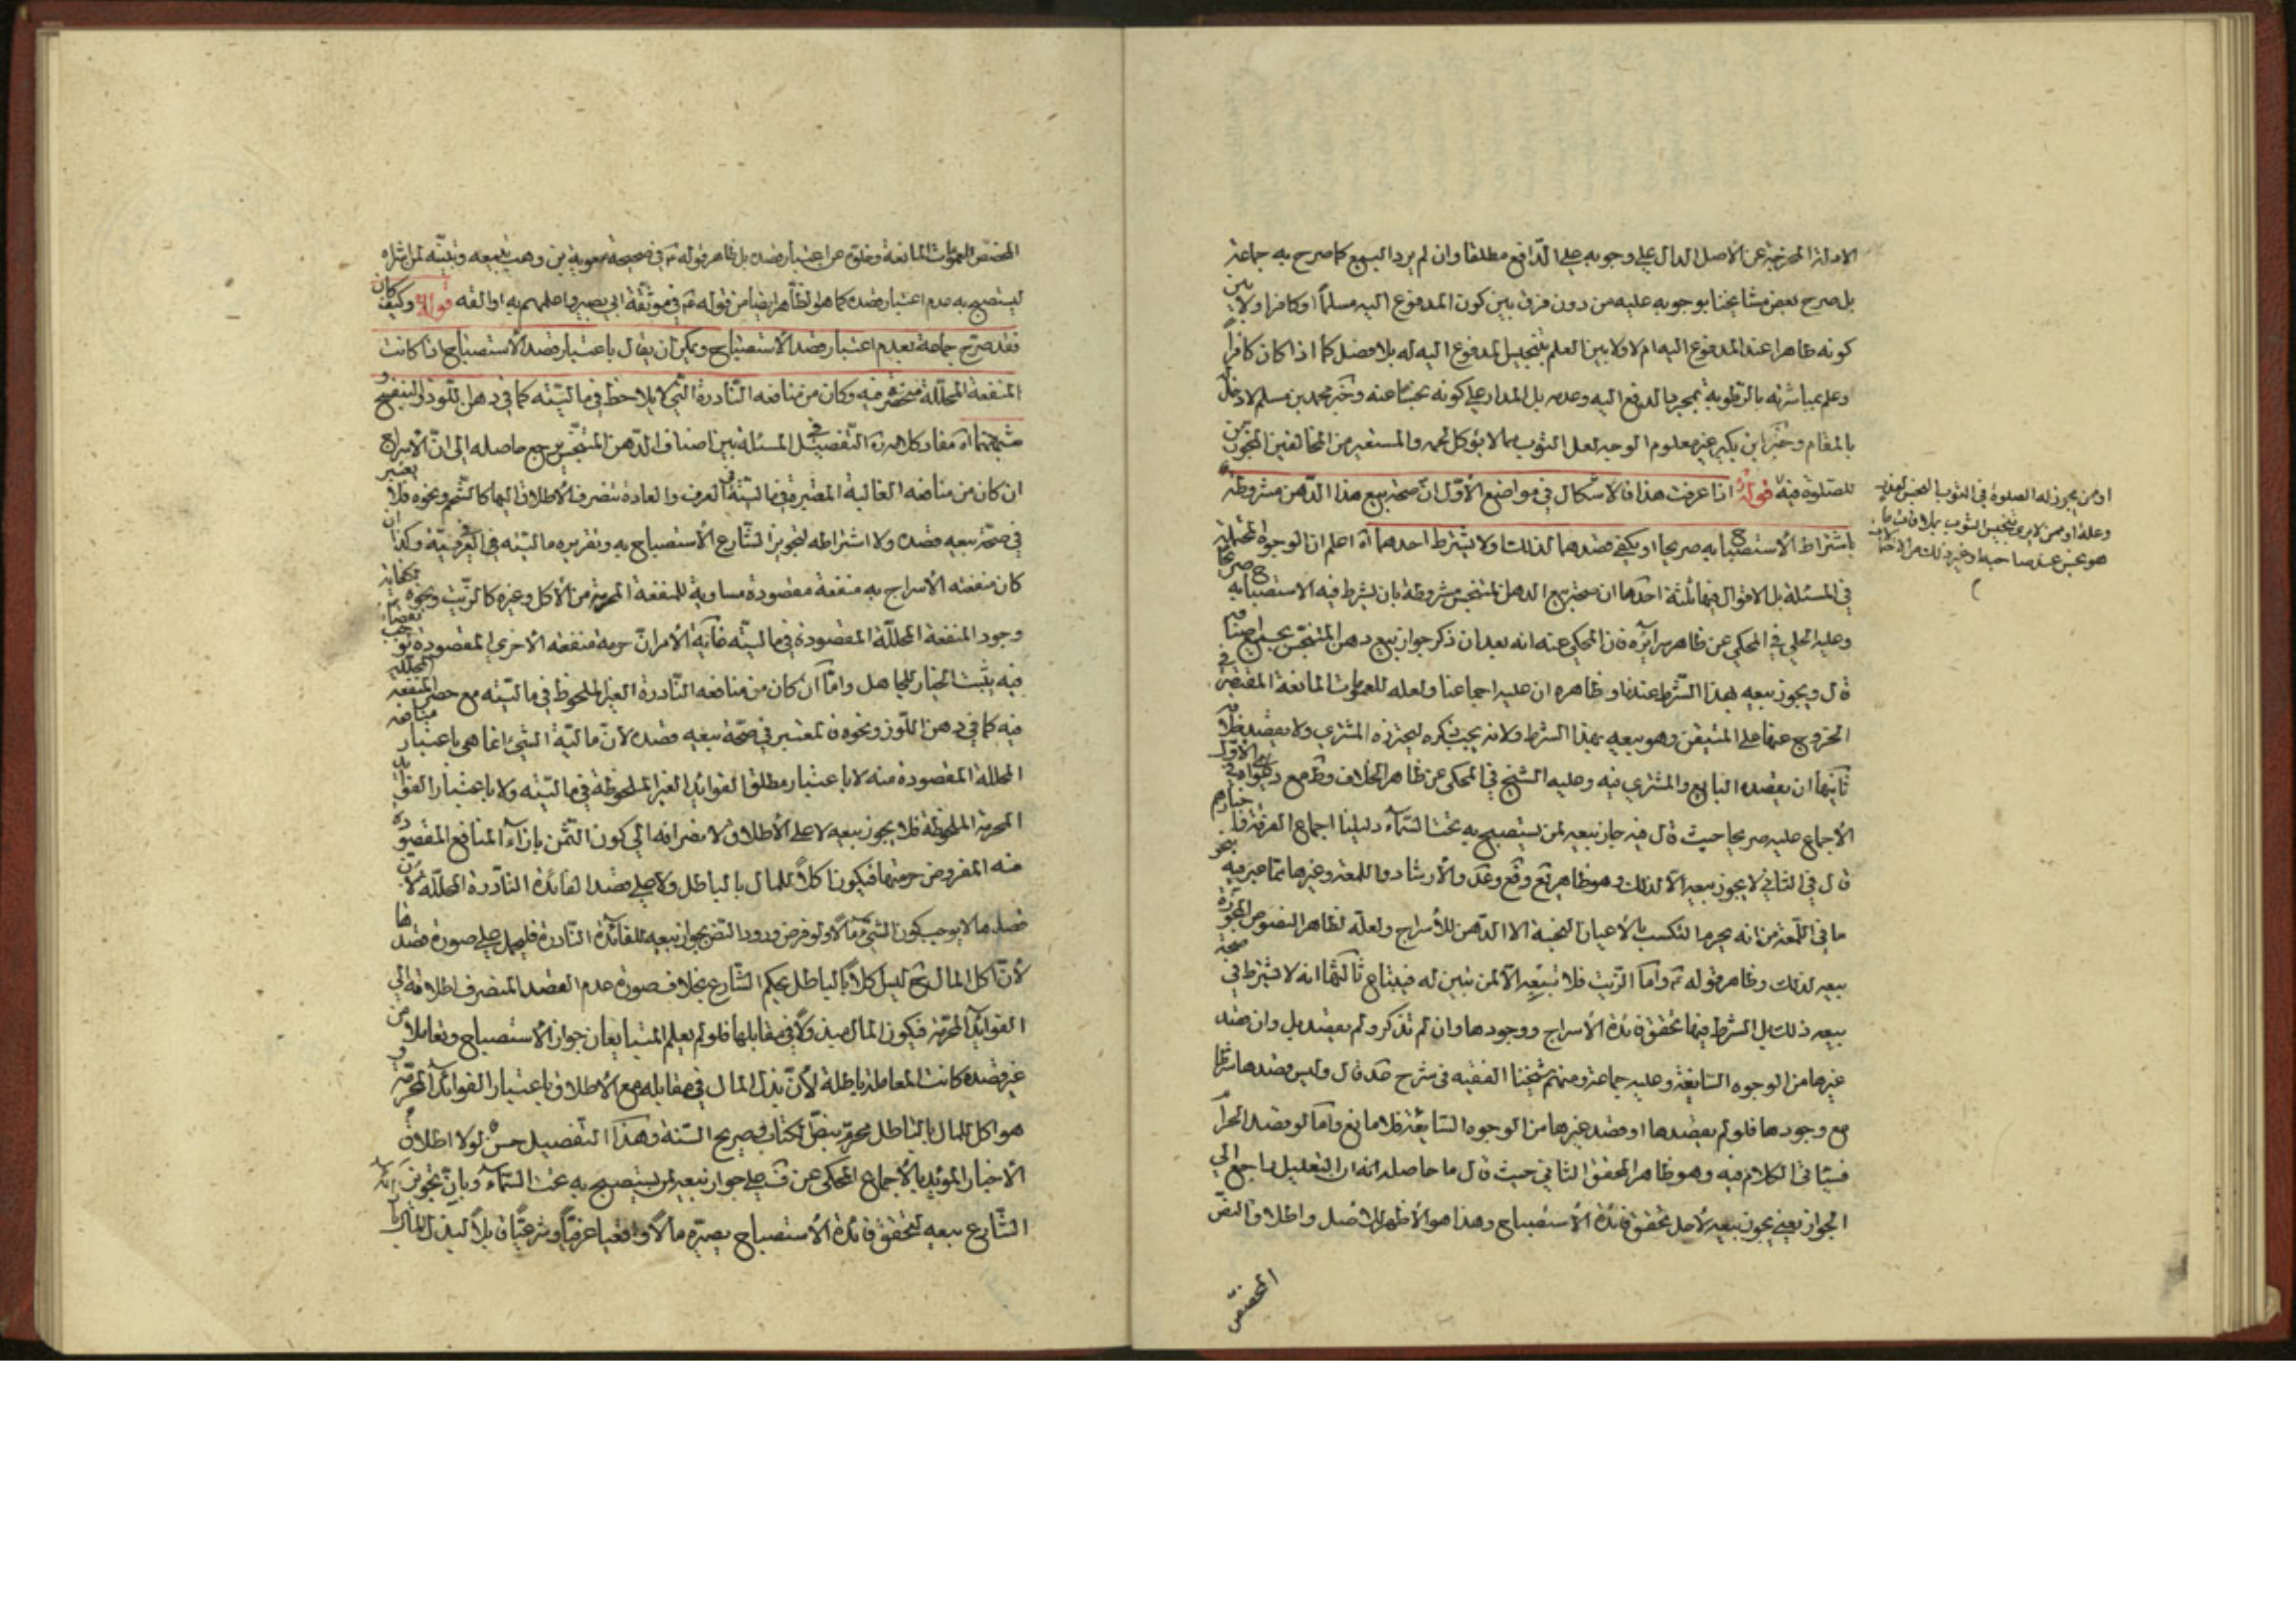 الادلة المخرجة عن الأصل الدال على وجوبه على الدافع مطلقا وان لم يرد البيع كما صرح به جماعة
بل صرح بعض مشايخنا بوجوبه عليه من دون فرق بين كون المدفوع اليه مسلماً او كافرا ولا بين
كونه ظاهرا عند المدفوع اليه ام لا ولا بين العلم بتنجيس المدفوع اليه له بلا فصل كما اذا كان كافراً
وعلم بمباشرته بالرطوبة بمجرد الدفع اليه وعدمه بل المدار على كونه نجسا عنده وخبر محمد بن مسلم لا دخل
بالمقام وخبر ابن بكير غير معلوم الوجه لعل الثوب مما لا يؤكل لحمه والمستعير من المخالفين المجوزين
للصلوة فيه قوله اذا عرفت هذا فالاشكال في مواضع الأول ان صحة بيع هذا الدهن مشروطة
او من يجوز له الصلوة في الثوب النجس لعذر
وعلة او ممن لا يرى تنجيس الثوب بملاقات ما
هو نجس عند صاحبه او غير ذلك من الاحتمالات
باشتراط الاستصباح به صريحا او يكفي قصدهما لذلك او لا يشترط احدهما اه اعلم ان الوجوه المحتملة
في المسئلة بل الاقوال فيها ثلثة احدها ان صحة بيع الدهن المتنجس مشروطة بان يشرط فيه الاستصباح به صريحا
وعليه الحلي في المحكي عن ظاهر سرائره فان المحكي عنه انه بعد ان ذكر جواز بيع دهن المتنجس بجميع اصنافه
قال ويجوز بيعه بهذا الشرط عندنا وظاهره ان عليه اجماعنا ولعله للعمومات المانعة المقتضية في
الخروج عنها على المتيقن وهو بيعه بهذا الشرط ولانه يجب ذكره ليحترزه المشتري ولا بقصد
ثانيها ان يقصده البايع والمشتري فيه وعليه الشيخ في المحكي عن ظاهر الخلاف وط مع دعواه في الاول
الاجماع عليه صريحا حيث قال فيه جاز بيعه لمن يستصبح به تحت السماء دليلنا اجماع الفرقة واخبارهم
قال في الثاني لا يجوز بيعه الا لذلك وهو ظاهر يع وقع وعد والارشاد واللمعة وغيرها مما عبر فيه بنحو
ما في اللمعة من انه يحرم التكسب بالاعيان النجسة الا الدهن للأسراج ولعله لظاهر النصوص المجوزة
بيعه لذلك وظاهر قوله ع واما الزيت فلا تبيعه الا لمن تبين له فيبتاع ثالثها انه لا يشترط في صحة
بيعه ذلك بل الشرط فيها تحقق فائدة الأسراج ووجودها وان لم تذكر ولم يقصد بل وان قصد
غيرها من الوجوه السايغة وعليه جماعة ومنهم شيخنا الفقيه في شرح عد قال وليس قصدها شرطا
مع وجودها فلو لم يقصدها او قصد غيرها من الوجوه السايغة فلا مانع واما لو قصد الحرام
فسيأتي الكلام فيه وهو ظاهر المحقق الثاني حيث قال ما حاصله انه ان التعليل راجع الى
الجواز يعني يجوز بيعه لأجل تحقق فائدة الأستصباح وهذا هو الأظهر للاصل واطلاق النص
المخصص
المخصص للعمومات المانعة وخلوه عن اعتبار قصده بل ظاهر قوله ع في صحيحة معوية بن وهب يبيعه ويبينه لمن اشتراه
ليستصبح به عدم اعتبار قصده كما هو الظاهر ايضا من قوله ع في موثقة ابي بصير واعلمهم به اذا بعته قوله وكيف كان
فقد صرح جماعة بعدم اعتبار قصد الأستصباح ويمكن ان يقال باعتبار قصد الأستصباح اذا كانت
المنفعة المحللة منحصرة فيه وكان من منافعه النادرة التي لا يلاحظ في ماليته كما في دهن اللوز والبنفسج
وشبههما اه مفاد كلامه ره التفصيل في المسئلة بين اصناف الدهن المتنجس يرجع حاصله الى ان الأسراج
ان كان من منافعه الغالبة المعتبرة في ماليته في العرف والعادة تنصرف الاطلاق اليها كالشحم ونحوه فلا يعتبر
في صحة بيعه قصده ولا اشتراطه لتجويز الشارع الأستصباح به وتقريره ماليته في العرفية وكذا ان
كان منفعته الأسراج به منفعة مقصودة مساوية للمنفعة المحرمة من الأكل وغيره كالزيت ونحوه لكفاية
وجود المنفعة المحللة المقصودة في ماليته غاية الأمر ان حرمة منفعته الأخرى المقصودة توجب نقصانا
فيه يثبت الخيار للجاهل واما ان كان من منافعه النادرة الغير الملحوظ في ماليته مع حصر المنفعة المحللة
فيه كما في دهن اللوز ونحوه فالمعتبر في صحة بيعه قصده لأن مالية الشئ انما هي باعتبار منافعه
المحللة المقصودة منه لا باعتبار مطلق الفوايد الغير الملحوظة في ماليته ولا باعتبار الفوائد
المحرمة الملحوظة فلا يجوز بيعه لا على الأطلاق لانصرافه الى كون الثمن بازاء المنافع المقصودة
منه المفروض حرمتها فيكون اكلاً للمال بالباطل ولا على قصد الفائدة النادرة المحللة لأن
قصدها لا يوجب كون الشئ مالاً ولو فرض ورود النص بجواز بيعه للفائدة النادرة فليحمل على صورة قصدها
لأن اكل المال ح ليس اكلاً بالباطل بحكم الشارع بخلاف صورة عدم القصد المنصرف اطلاقه الى
الفوايد المحرمة فيكون المال مبذولاً في مقابلها فلو لم يعلم المتبايعان جواز الأستصباح وتعاملا من
غير قصده كانت المعاملة باطلة لأن بذل المال في مقابله مع الأطلاق باعتبار الفوائد المحرمة و
هو اكل المال بالباطل محرم بنص الكتاب وصريح السنة وهذا التفصيل حسن لولا اطلاق
الأخبار المؤيد بالأجماع المحكي عن ف على جواز بيعه لمن يستصبح به تحت السماء وبان تجويز
الشارع بيعه لتحقق فائدة الأستصباح يصيره مالاً واقعيا عرفياً وشرعياً قابلاً لبذل المال